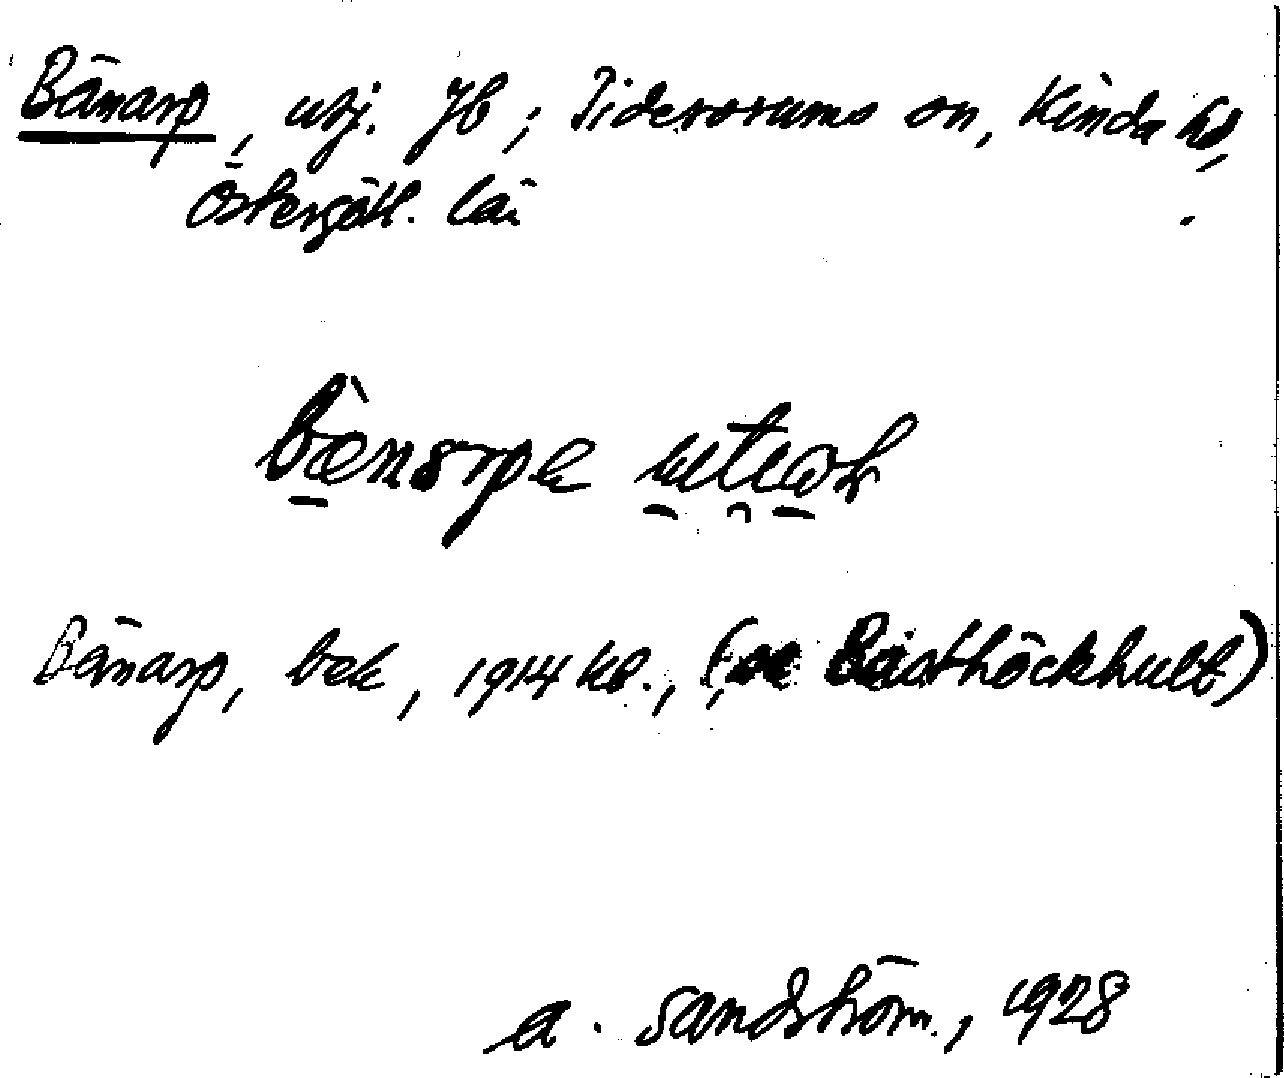 Bänarp, utj. Jb; Tidersrums sn, Kinda hd,
Östergötl. län
Bänarp, bek, 1914 kb., (se Bästhöckhult)
A. Sandström, 1928